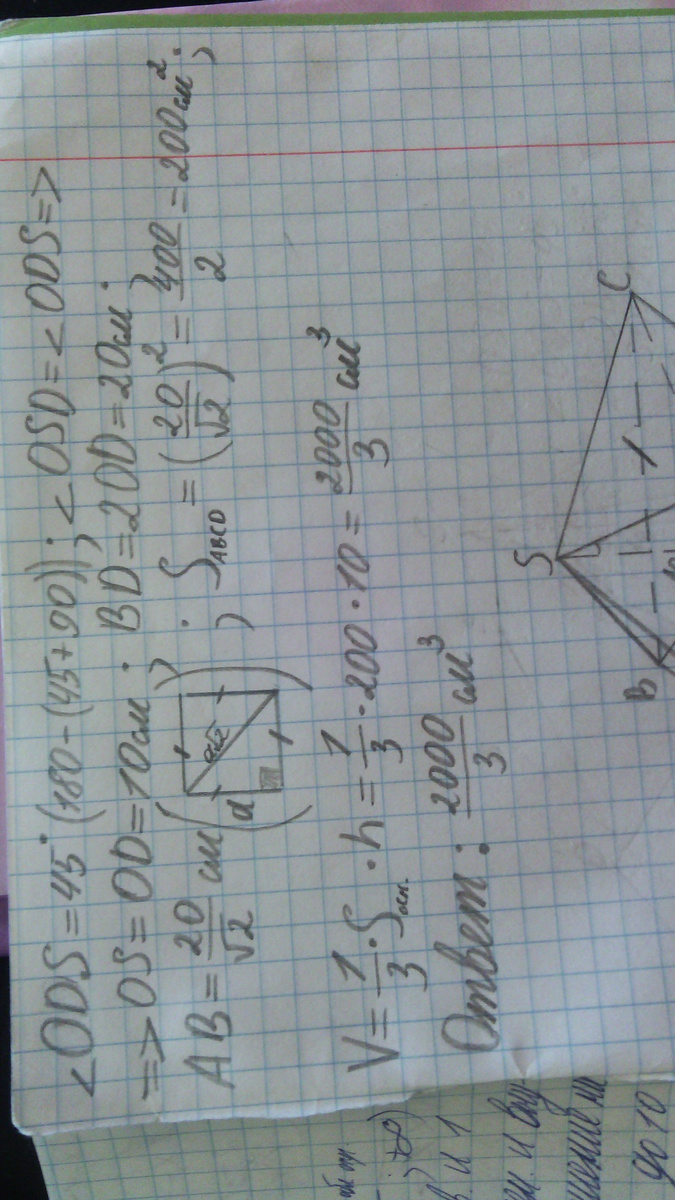 <ODS = 45° (180 - (45 + 90)); <OSD = <ODS =>
=> OS = OD = 10см; BD = 2OD = 20см;
AB = 20/√2 см (a a√2); S_ABCD = (20/√2)² = 400/2 = 200см²;
V = 1/3 · Sосн. · h = 1/3 · 200 · 10 = 2000/3 см³
Ответ: 2000/3 см³
S
B
C
и 1
и вну-
до 10